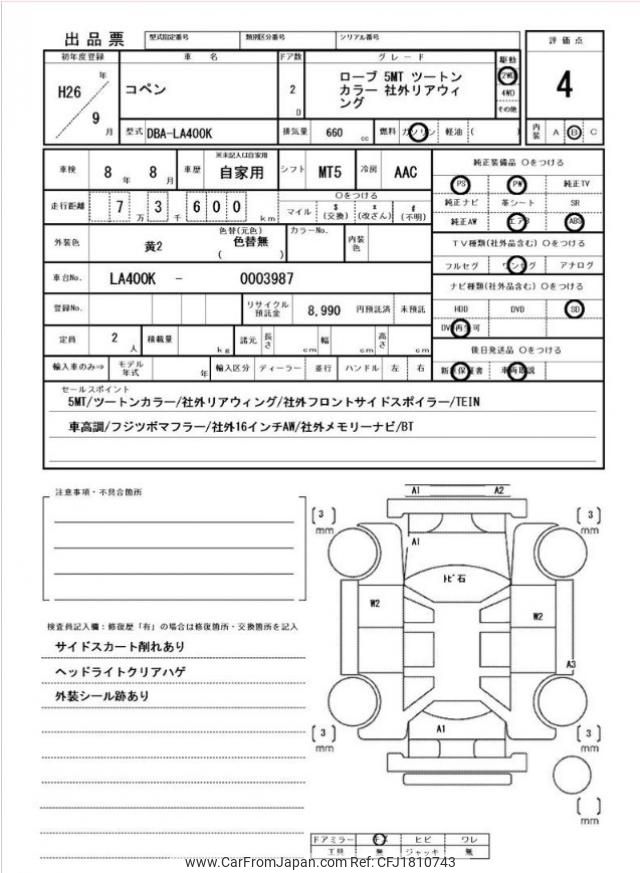 出品票 型式指定番号 類別区分番号 シリアル番号
初年度登録 車 名 ドア数 グレード 駆動 評価点
H26 年 9 月
コペン
2 D
ローブ 5MT ツートン
カラー 社外リアウィ
ング
2WD
4WD
その他
4
型式 DBA-LA400K 排気量 660 cc 燃料 ガソリン 軽油 ( ) 内装 A B C
車検 8 年 8 月 車歴 ※未記入は自家用 自家用 シフト MT5 冷房 AAC
純正装備品 ○をつける
走行距離 7 万 3 千 6 0 0 km
○をつける
マイル $ (交換) * (改ざん) # (不明)
PS PW 純正TV
純正ナビ 革シート SR
純正AW エアB ABS
外装色 黄2 色替(元色) 色替無 ( ) カラーNo. 内装色
TV種類(社外品含む) ○をつける
フルセグ ワンセグ アナログ
車台No. LA400K - 0003987
ナビ種類(社外品含む) ○をつける
登録No. リサイクル預託金 8,990 円預託済 未預託
HDD DVD SD
DVD再生可
定員 2 人 積載量 kg 諸元 長さ cm 幅 cm 高さ cm
後日発送品 ○をつける
輸入車のみ⇒ モデル年式 年 輸入区分 ディーラー 並行 ハンドル 左 右
新車保証書 車両取説
セールスポイント
5MT/ツートンカラー/社外リアウィング/社外フロントサイドスポイラー/TEIN
車高調/フジツボマフラー/社外16インチAW/社外メモリーナビ/BT
注意事項・不具合箇所
検査員記入欄:修復歴「有」の場合は修復箇所・交換箇所を記入
サイドスカート削れあり
ヘッドライトクリアハゲ
外装シール跡あり
A1 A2
[3] mm [3] mm
A1
トビ石
W2 W2
A3
A1
[3] mm [3] mm
[ ] mm
ドアミラー キズ ヒビ ワレ
工具 無 ジャッキ 無
www.CarFromJapan.com Ref: CFJ1810743